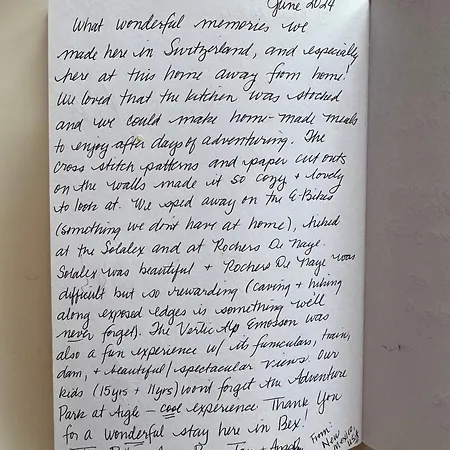 June 2024
What wonderful memories we
made here in Switzerland, and especially
here at this home away from home!
We loved that the kitchen was stocked
and we could make home-made meals
to enjoy after days of adventuring. The
cross stitch patterns and paper cut outs
on the walls made it so cozy + lovely
to look at. We sped away on the E-Bikes
(something we don't have at home), hiked
at the Solalex and at Rochers De Naye.
Solalex was beautiful + Rochers De Naye was
difficult but so rewarding (caving + hiking
along exposed edges is something we'll
never forget). The Vertic Alp Emosson was
also a fun experience w/ its funiculars, train,
dam, + beautiful/spectacular views. Our
kids (15yrs + 11yrs) wont forget the Adventure
Park at Aigle – cool experience Thank You
for a wonderful stay here in Bex!
From:
New
Mexico,
USA